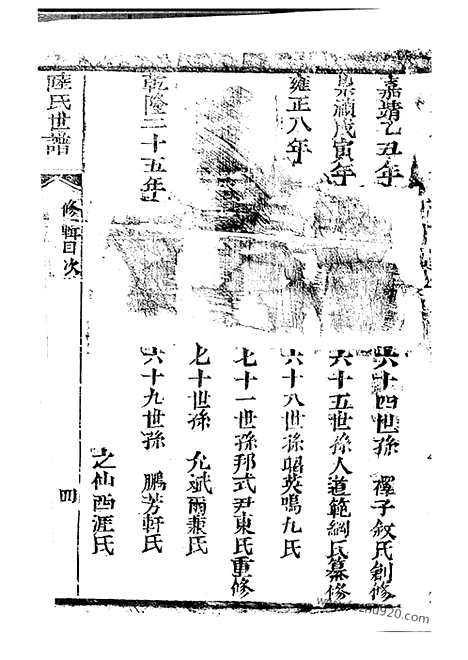 嘉靖乙丑年 六十四世孫 襗子敘氏創修
崇禎戊寅年 六十五世孫人道範綱氏纂修
雍正八年 六十八世孫唱英鳴九氏
七十一世孫邦式尹東氏重修
七十世孫 允斌雨兼氏
乾隆二十五年 六十九世孫 鵬芳軒氏
之仙酉涯氏
陸氏世譜
修輯目次
四